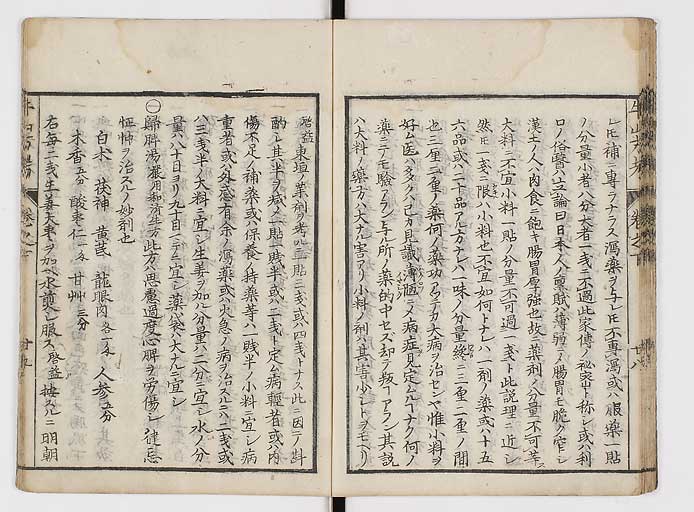 レ𪜈補ニ專ラナラス瀉薬ヲ与レ𪜈不專瀉或ハ服薬一貼
ノ分量小者ハ八分大者一戔ニ不過此家傳ノ秘密ト称シ或ハ利
口ノ俗醫ハ立論曰日本ハ人ノ稟賦薄弱ニノ腸胃モ脆ク窄シ
漢土ノ人ハ肉食ニ飽キ腸胃厚強也故ニ薬剤ノ分量不可等
大料ニ不宜小料一貼ノ分量不可過一戔ト此説理ニ近シ
然𪜈一戔ニ限ハ小料也不宜如何トナレハ一剤ノ薬或ハ十五
六品或ハ二十品アル方ナレハ一味ノ分量纔ニ三厘二厘ノ間
也三厘二厘ノ薬何ノ薬功アツテカ大病ヲ治センヤ惟小料ヲ
好ム医ハ多クハ已カ見識専ニメ病症見定ムルナク何ノ
薬ニテモ験アラン与ル所ノ薬的中セス却テ敗ーアラン其説
ハ大料ノ薬方ハ大ナル害アリ小料ノ剤ハ其害小シトヲモヘリ
啓益 東垣ノ薬剤ヲ考ルニ一貼三戔或ハ四戔トナス此ニ因テ斟
酌シ其半ヲ減メ一貼一戔半或ハ二戔ト定ム病輕者或ハ内
傷不足ノ補薬或ハ保養ノ持薬等ハ一戔半ノ小料ニ宜シ病
重者或ハ外感有余ノ瀉薬或ハ火急ノ病ヲ治スルニハ二戔或
ハ三戔半ノ大料ニ宜シ生姜ヲ加ル分量ハ二分ニ宜シ水ノ分
量ハ八十目ヨリ九十目ニテ宜シ薬袋ハ大ナルニ宜シ
㊀歸脾湯 嚴用和済生方 此方ハ思慮過度心脾ヲ労傷シ健忘
怔忡ヲ治スルノ妙剤也
白朮 茯神 黄芪 龍眼肉 各一戔 人参 五分
木香 五分 酸棗仁 一戔 甘艸 三分
右毎二戔生姜大棗ヲ加ヘ水煎メ服ス啓益按スルニ明朝